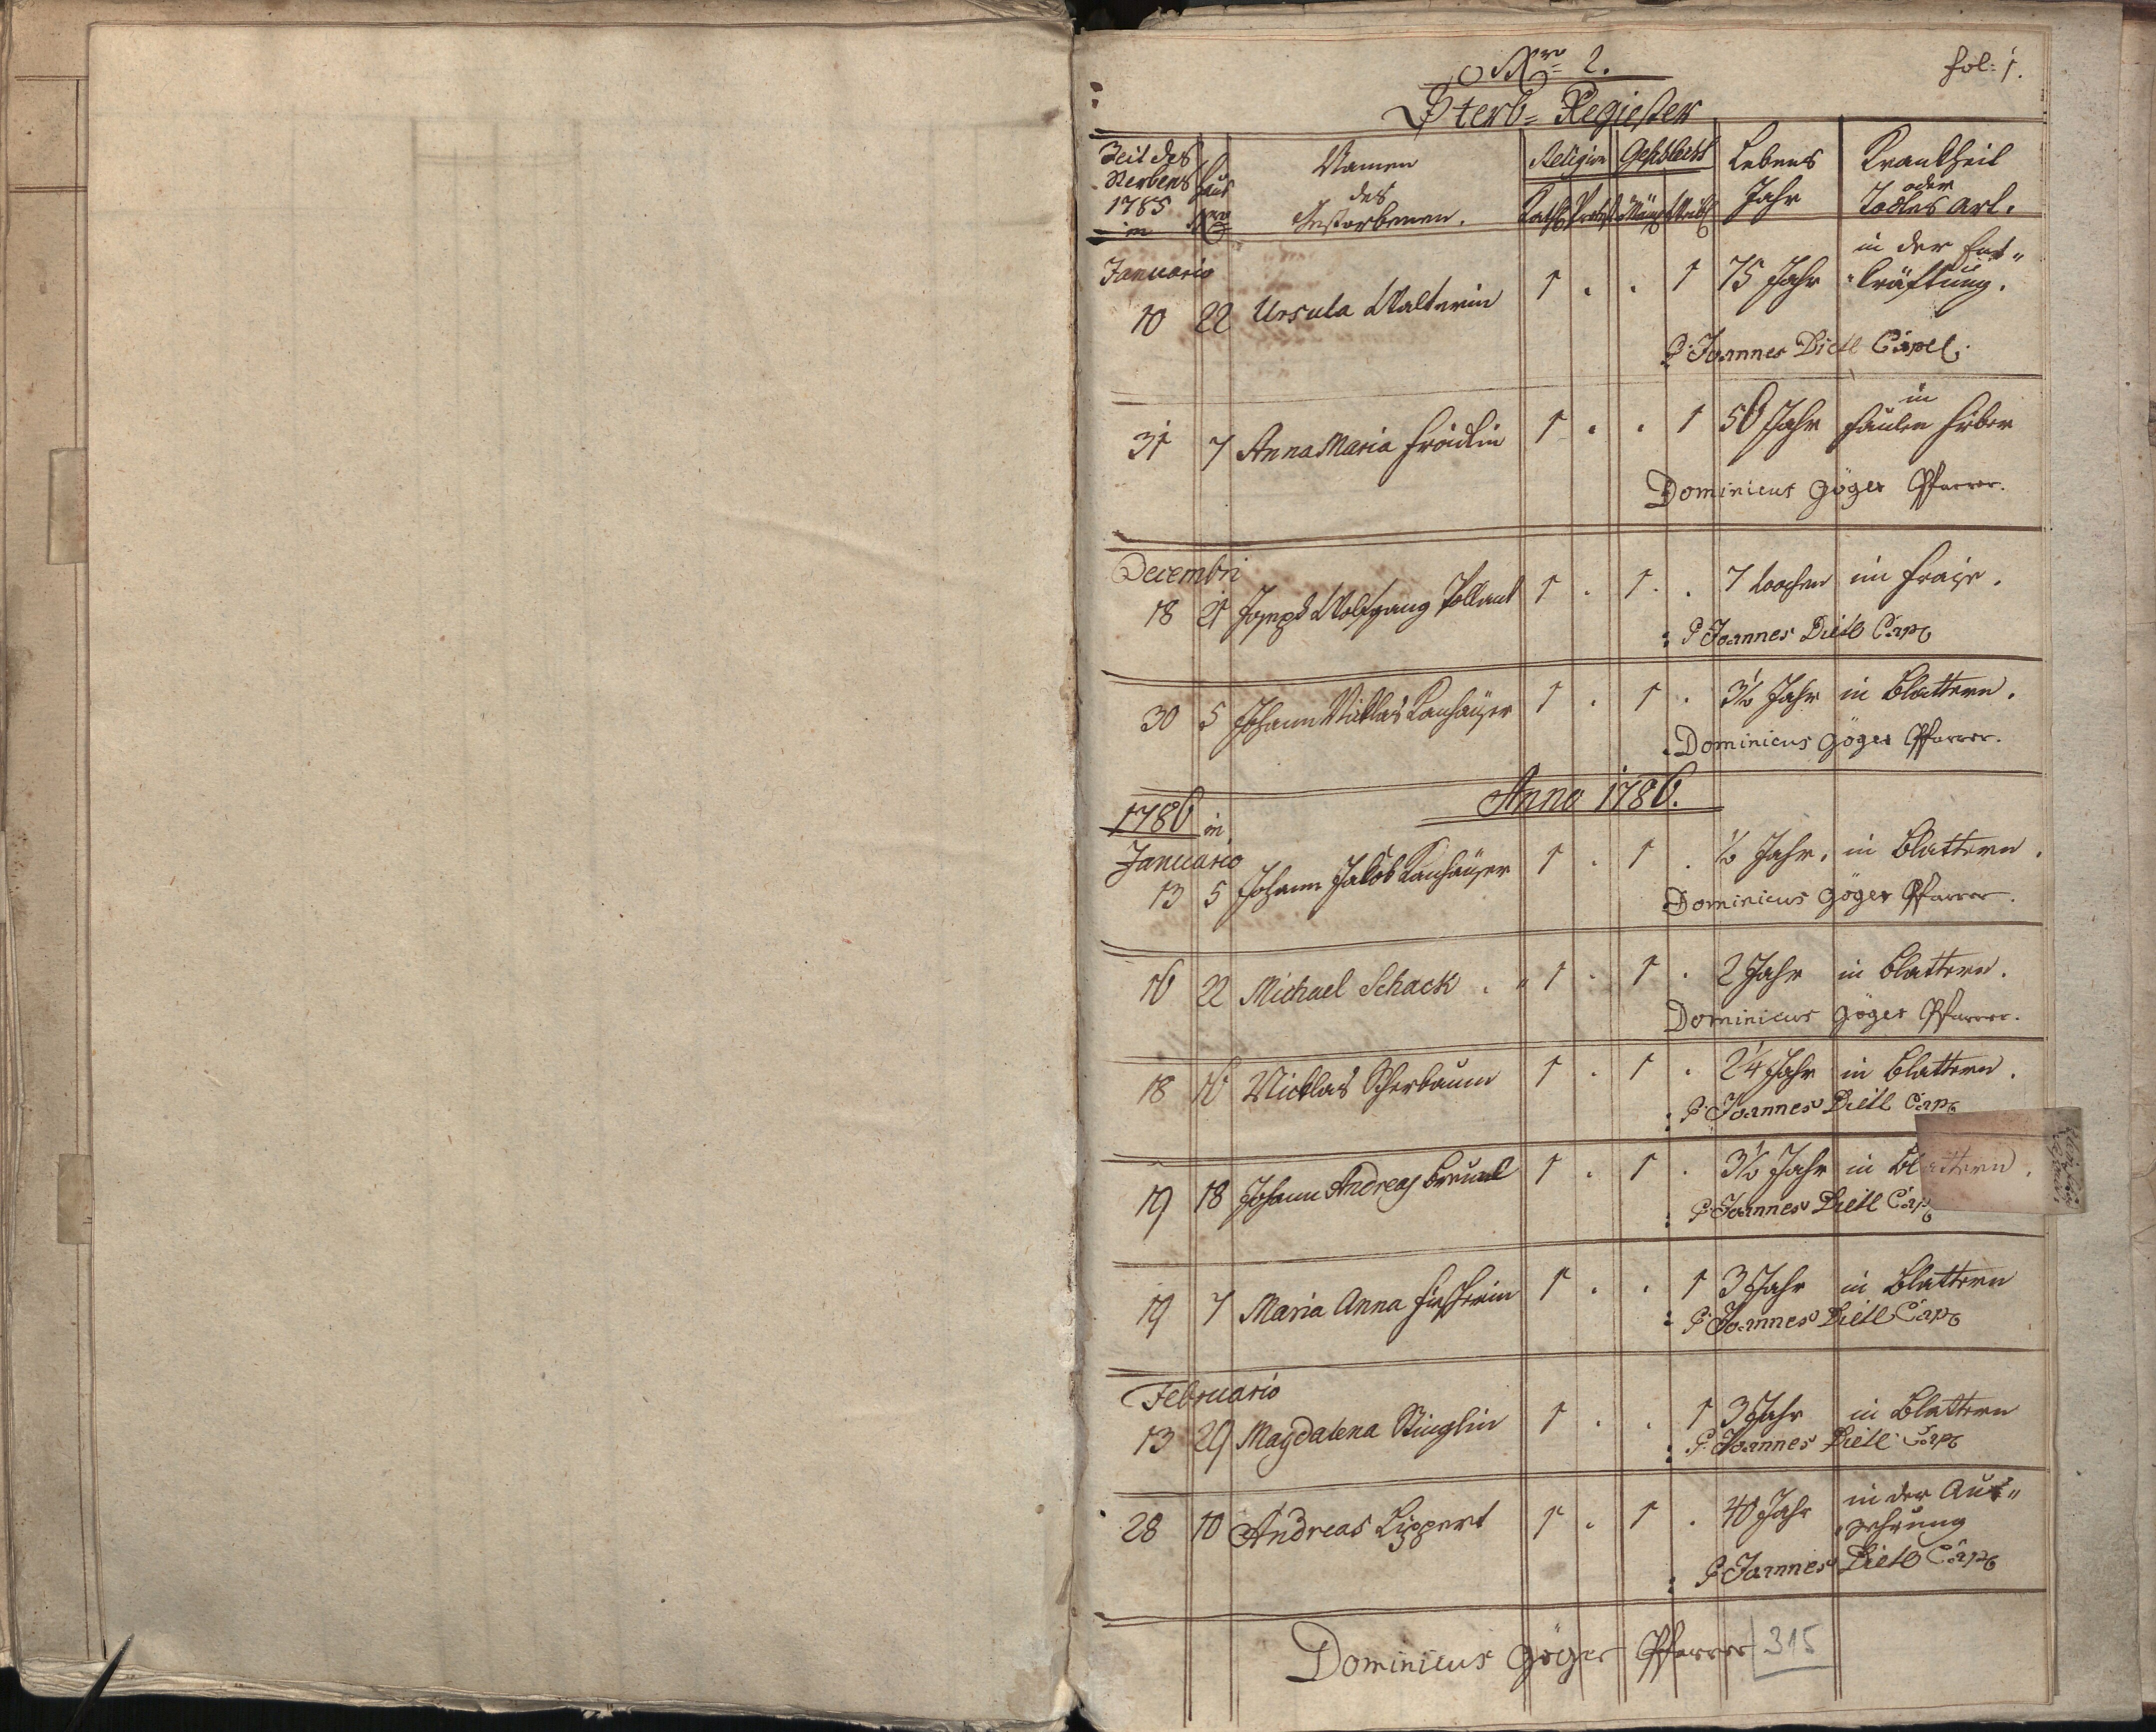 Nro 2.
fol: 1.
Sterb= Register
Zeit des Sterbens 1785 in
Haus Nro
Namen des Gestorbenen.
Religion
Geschlecht
Kath. Protest. Mänl. Weibl.
Lebens Jahr
Krankheit oder Todtes art.
Januario
10 22 Ursula Walterin 1 . . 1 75 Jahr in der Ent„
kräftung.
P. Joannes Dietl Capel.
31 7 Anna Maria 1 . . 1 50 Jahr in faulen fieber
Dominicus Göger Pfarrer.
Decembri
18 21 Joseph Wolfgang 1 . 1 . 7 wochen im fraise.
: P Joannes Dietl Cap
30 5 Johann Nicklas Kanhäuser 1 . 1 . 3½ Jahr in Blattern.
Dominicus Göger Pfarrer.
Anno 1786.
1786 in
Januario
13 5 Johann Jakob Kanhäuser 1 . 1 . ½ Jahr. in Blattern.
Dominicus Göger Pfarrer.
16 22 Michael Schack . „ 1 . 1 . 2 Jahr in Blattern.
Dominicus Göger Pfarrer.
18 16 Nicklas Scherbaum 1 . 1 . 2¼ Jahr in Blattern.
: P. Joannes Dietl Cap
19 18 Johann Andreas 1 . 1 . 3½ Jahr in Blattern.
: P. Joannes Dietl Cap
19 7 Maria Anna Fischerin 1 . . 1 3 Jahr in Blattern
: P. Joannes Dietl Cap
Februario
13 29 Magdalena Stinglin 1 . . 1 3 Jahr in Blattern
: P. Joannes Dietl Cap
28 10 Andreas Lippert 1 . 1 . 40 Jahr in der Aus„
zehrung
: P. Joannes Dietl Cap
Dominicus Göger Pfarrer
315